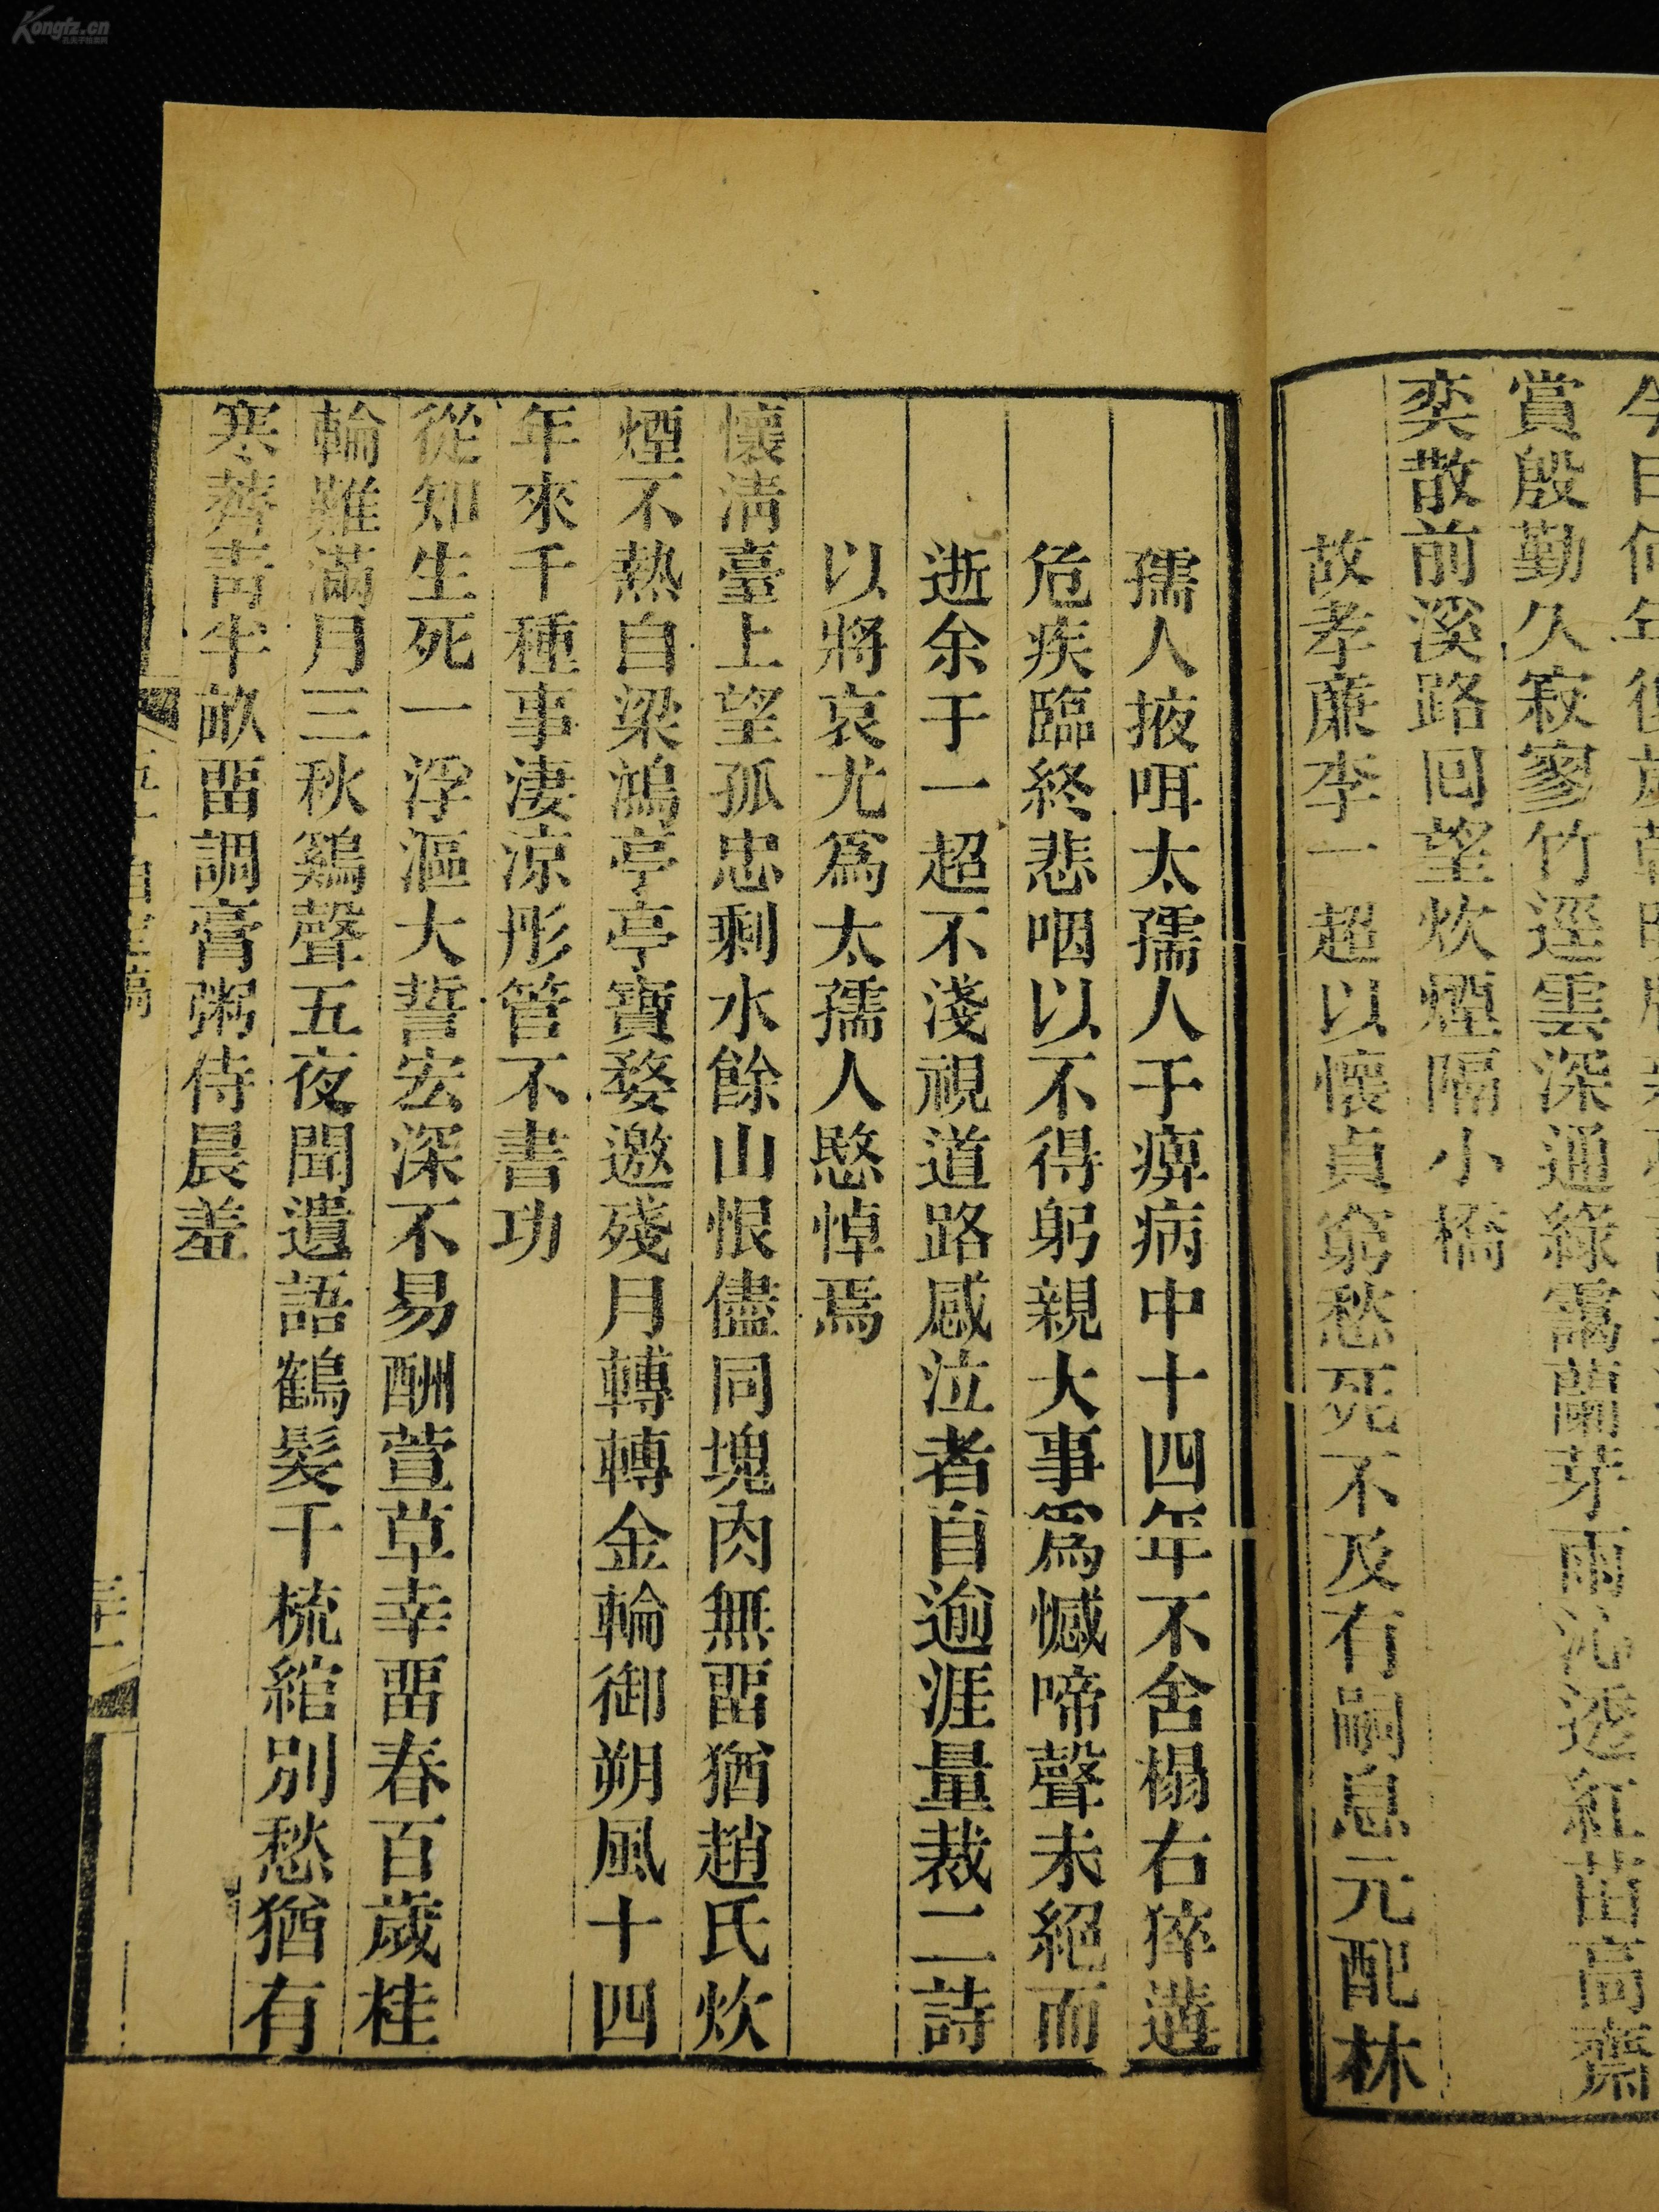 賞殷勤久寂寥竹逕雲深通綠靄蘭芽雨沁透紅苗高齋
奕散前溪路回望炊煙隔小橋
故孝廉李一超以懷貞窮愁死不及有嗣息元配林
孺人掖咡太孺人于痹病中十四年不舍榻右猝遘
危疾臨終悲咽以不得躬親大事爲憾啼聲未絕而
逝余于一超不淺視道路感泣者自逾涯量裁二詩
以將哀尤爲太孺人愍悼焉
懷淸臺上望孤忠剩水餘山恨儘同塊肉無畱猶趙氏炊
煙不熱自梁鴻亭亭寶婺邀殘月轉轉金輪御朔風十四
年來千種事淒涼彤管不書功
從知生死一浮漚大誓宏深不易酬萱草幸畱春百歲桂
輪難滿月三秋鷄聲五夜聞遺語鶴髮千梳綰別愁猶有
寒虀靑半畝畱調膏粥侍晨羞
Kongfz.cn